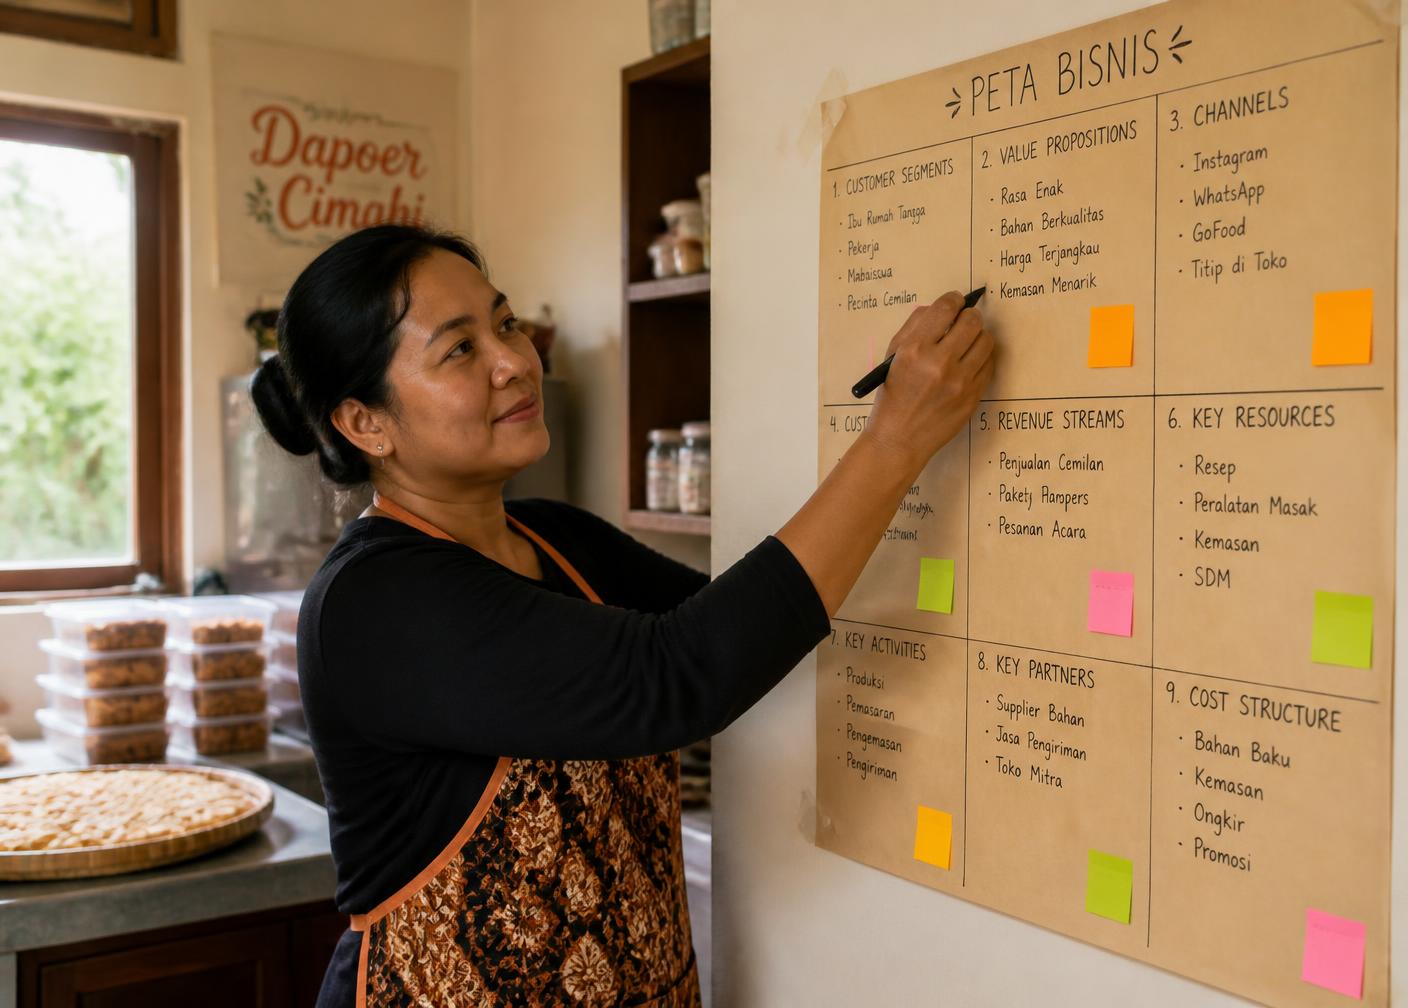 Dapoer
Cimahi
PETA BISNIS
1. CUSTOMER SEGMENTS
· Ibu Rumah Tangga
· Pekerja
· Mabaiscwa
· Pecinta Cemilan
2. VALUE PROPOSITIONS
· Rasa Enak
· Bahan Berkualitas
· Harga Terjangkau
· Kemasan Menarik
3. CHANNELS
· Instagram
· WhatsApp
· GoFood
· Titip di Toko
4. CUST
5. REVENUE STREAMS
· Penjualan Cemilan
· Pakety Hampers
· Pesanan Acara
6. KEY RESOURCES
· Resep
· Peralatan Masak
· Kemasan
· SDM
7. KEY ACTIVITIES
· Produksi
· Pemasaran
· Pengemasan
· Pengiriman
8. KEY PARTNERS
· Supplier Bahan
· Jasa Pengiriman
· Toko Mitra
9. COST STRUCTURE
· Bahan Baku
· Kemasan
· Ongkir
· Promosi